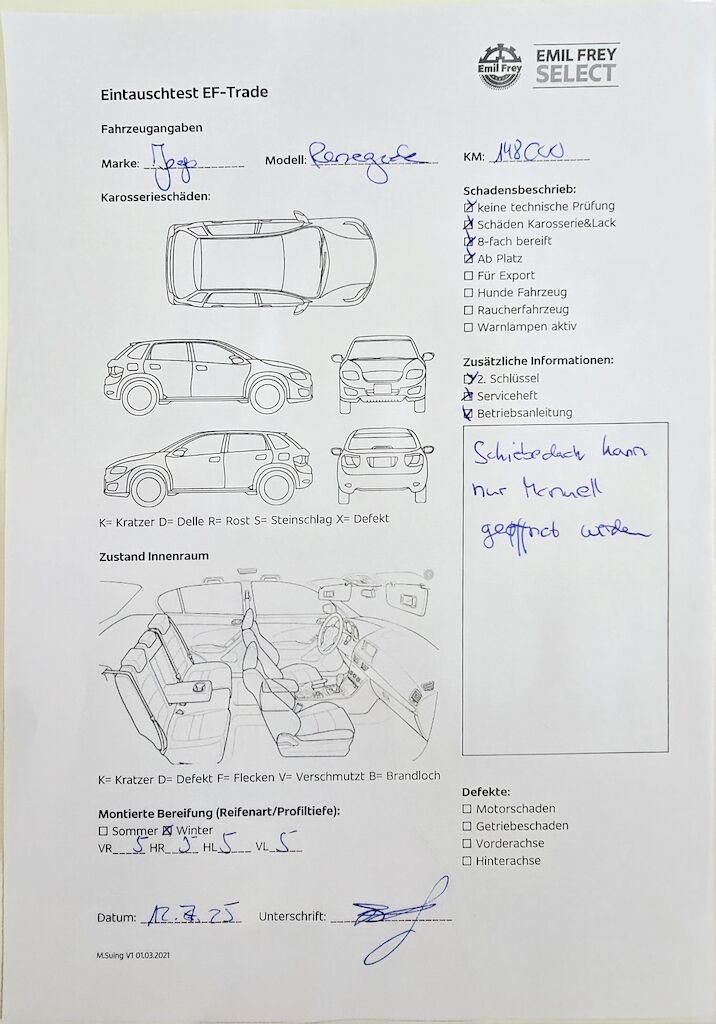 Emil Frey
EMIL FREY
SELECT
Eintauschtest EF-Trade
Fahrzeugangaben
Marke: Jeep Modell: Renegade KM: 148000
Karosserieschäden:
K= Kratzer D= Delle R= Rost S= Steinschlag X= Defekt
Zustand Innenraum
K= Kratzer D= Defekt F= Flecken V= Verschmutzt B= Brandloch
Montierte Bereifung (Reifenart/Profiltiefe):
☐ Sommer ☒ Winter
VR 5 HR 5 HL 5 VL 5
Schadensbeschrieb:
☒ keine technische Prüfung
☒ Schäden Karosserie&Lack
☒ 8-fach bereift
☒ Ab Platz
☐ Für Export
☐ Hunde Fahrzeug
☐ Raucherfahrzeug
☐ Warnlampen aktiv
Zusätzliche Informationen:
☒ 2. Schlüssel
☒ Serviceheft
☒ Betriebsanleitung
Schiebedach kann
nur Manuell
geöffnet werden
Defekte:
☐ Motorschaden
☐ Getriebeschaden
☐ Vorderachse
☐ Hinterachse
Datum: 12.7.25 Unterschrift:
M.Suing V1 01.03.2021